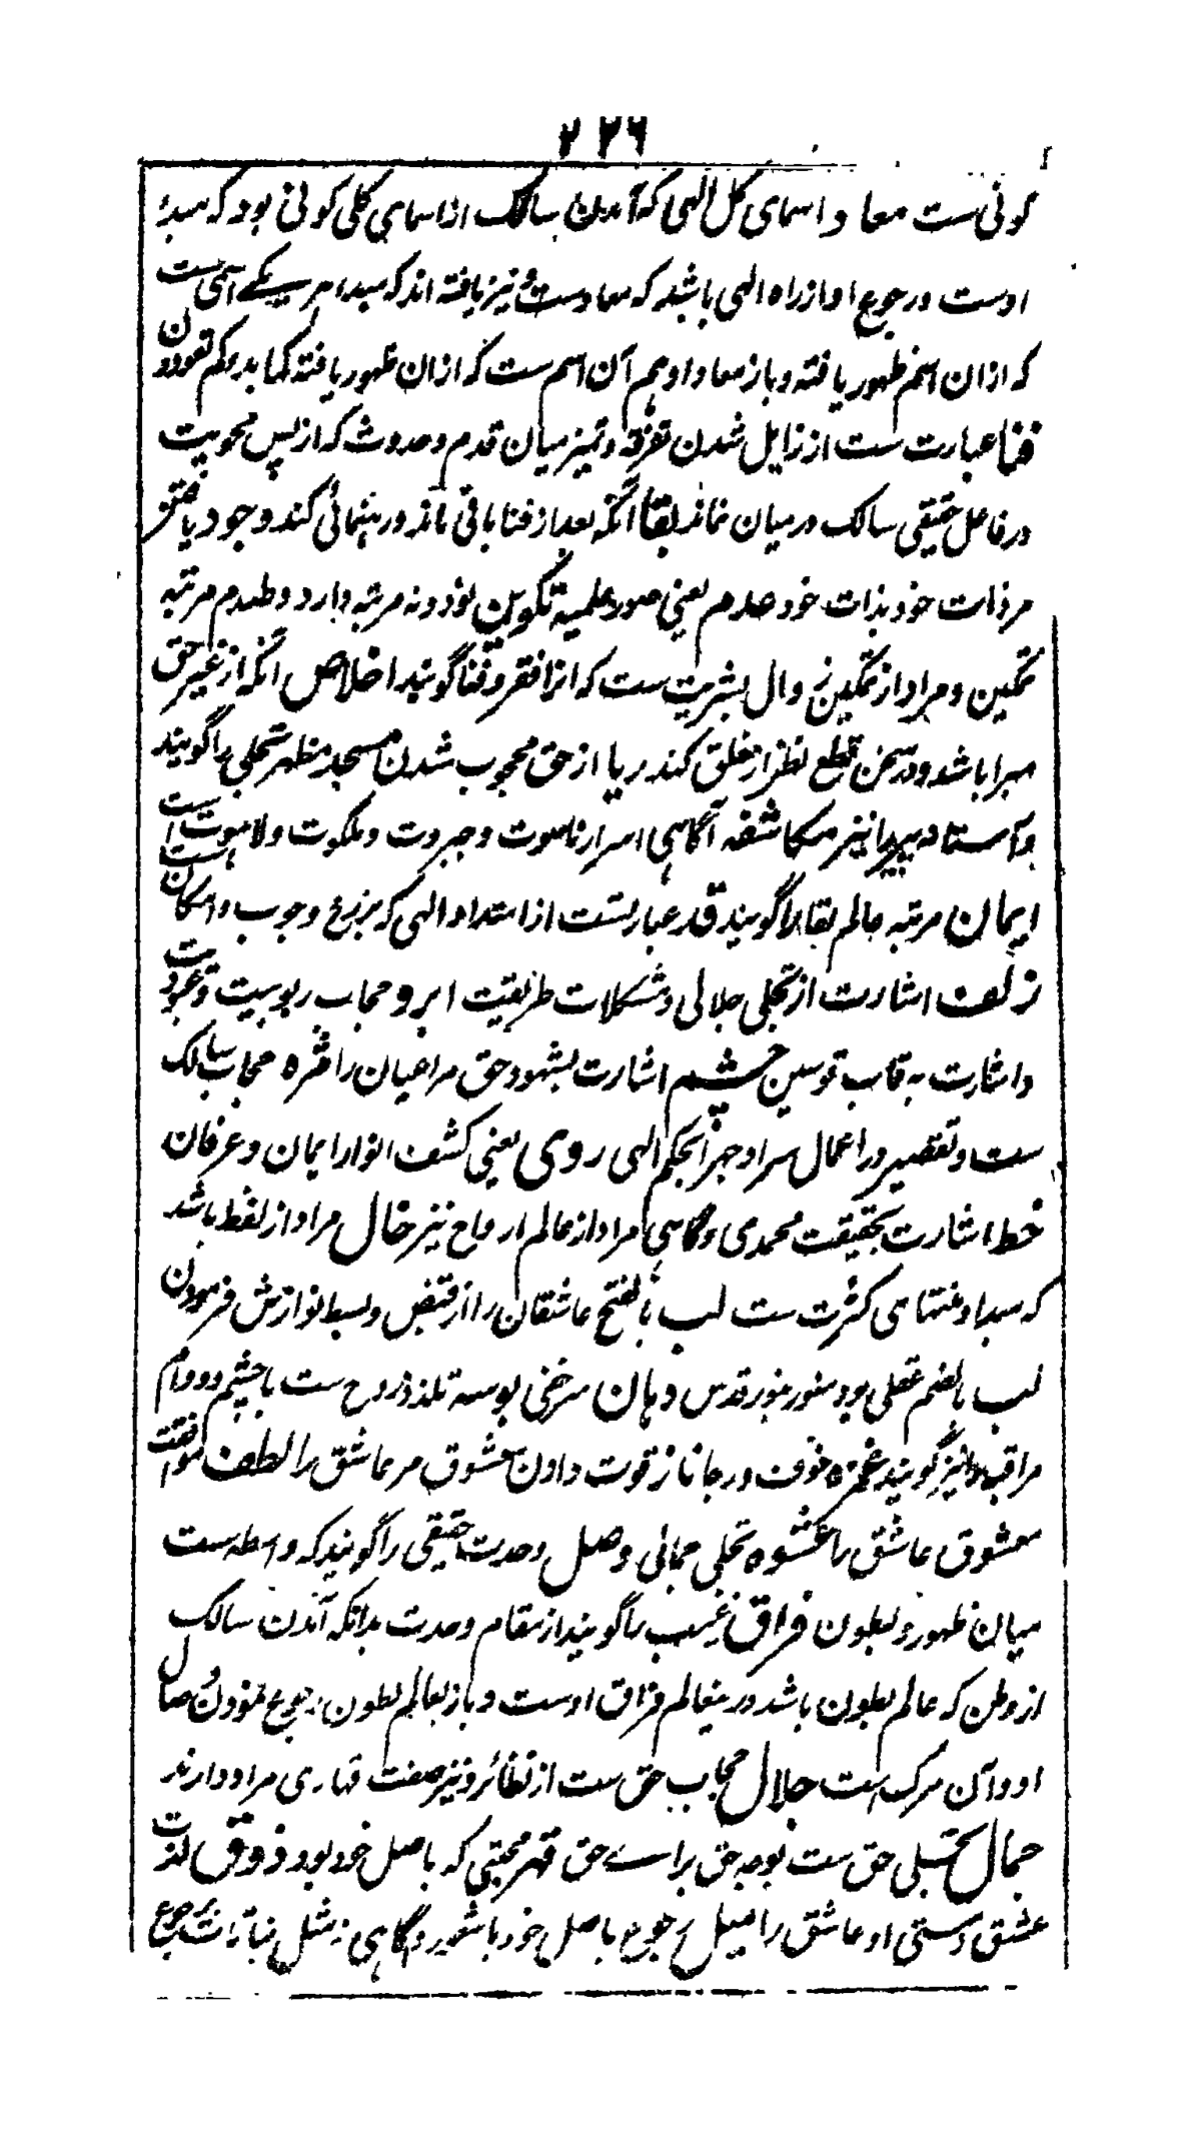 ۲۲۶
کونی ست معاد اسمای کل الهی که آمدن سالک از اسمای کلی کونی بود که مبدءِ
اوست و رجوع او از راه الهی باشد که معاد ست و نیز یافته اند که مبداء هر یکے اسمی ست
که ازان اسم ظهور یافته و باز معاد او هم آن اسم ست که ازان ظهور یافته کما بدءکم تعودون
فنا عبارت ست از زایل شدن تفرقه و تمیز میان قدم و حدوث که از پس محویت
در فاعل حقیقی سالک درمیان نماند بقا آنکه بعد از فنا باقی ماند و رهنمائی کند وجود یافتن
مر ذات خود بذات خود عدم یعنی صور علمیه تکوین نود و نه مرتبه دارد و صدم مرتبه
تمکین و مراد از تمکین زوال بشریت ست که انرا فقر و فنا گویند اخلاص آنکه از غیر حق
مبرا باشد و در سخن قطع نظر از خلق کند ریا از حق محجوب شدن مسجد مظهر تجلی را گویند
و آستانه پیر را نیز مکاشفه آگاهی اسرار ناسوت و جبروت و ملکوت و لاهوت است
ایمان مرتبه عالم بقا را گویند قد عبارتست از امتداد الهی که برزخ وجوب و امکان ست
زلف اشارت از تجلی جلالی و مشکلات طریقیت ابرو حجاب ربوبیت و عبودیت
و اشارت به قاب قوسین چشم اشارت بشهود حق مر اعیان را مژه حجاب سالک
ست و تقصیر در اعمال سرا و جهرا بحکم الهی روی یعنی کشف انوار ایمان و عرفان
خط اشارت بحقیقت محمدی و گاهی مراد از عالم ارواح نیز خال مراد از نقط باشد
که مبدا و منتهای کثرت ست لب بالفتح عاشقان را از قبض و بسط نوازش فرمودن
لب بالضم عقلی بود منور بنور قدس دهان سرخی بوسه تلذذ روح ست با چشم و دوام
مراقبه را نیز گویند غمزه خوف و رجا ناز قوت دادن معشوق مر عاشق را لطف موافقت
معشوق عاشق را عشوه تجلی جمالی وصل وحدت حقیقی را گویند که واسطه ست
میان ظهور و بطون فراق غیب را گویند از مقام وحدت بدانکه آمدن سالک
از وطن که عالم بطون باشد درینعالم فراق اوست و باز بعالم بطون رجوع نمودن وصال
او و آن مرگ ست جلال حجاب حق ست از نظائر و نیز صفت قهاری مراد دارند
جمال تجلی حق ست بوجه حق براے حق قهر محبتی که باصل خود بود ذوق لذت
عشق و مستی او عاشق را میل رجوع باصل خود باشد و گاهی مثل نباتات رجوع